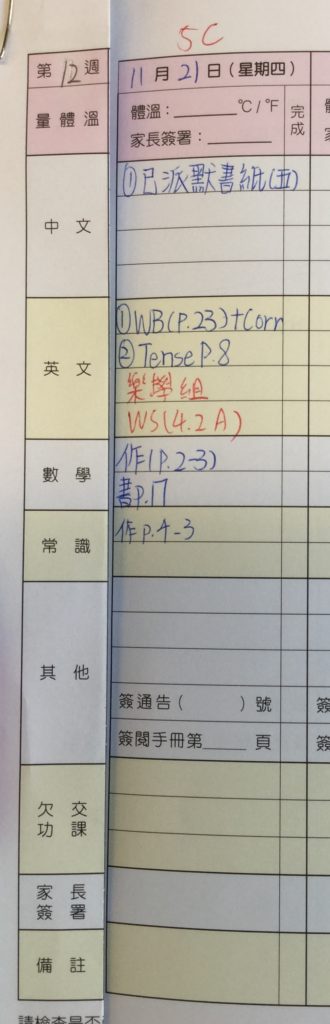 5C
第12週
11月21日(星期四)
量體溫
體溫:______°C/°F
家長簽署:______
完成
中文
①已派默書紙(五)
英文
①WB(P.23)+Corr
②Tense P.8
樂學組
WS(4.2A)
數學
作(P.2-3)
書p.17
常識
作p.4-3
其他
簽通告( )號
簽閱手冊第____頁
欠交功課
家長簽署
備註
請檢查是否